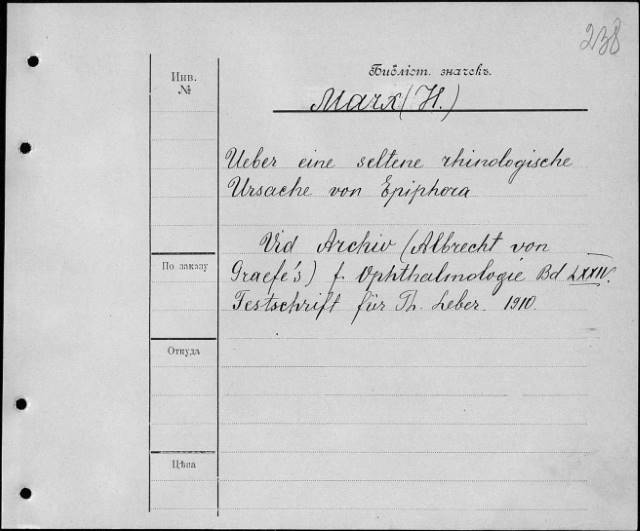 238
Инв.
№
Библіот. значекъ.
Marx (H.)
Ueber eine seltene rhinologische
Ursache von Epiphora
Vid Archiv (Albrecht von
Graefe's) f. Ophthalmologie Bd LXXIV.
Festschrift für Th. Leber. 1910.
По заказу
Откуда
Цѣна